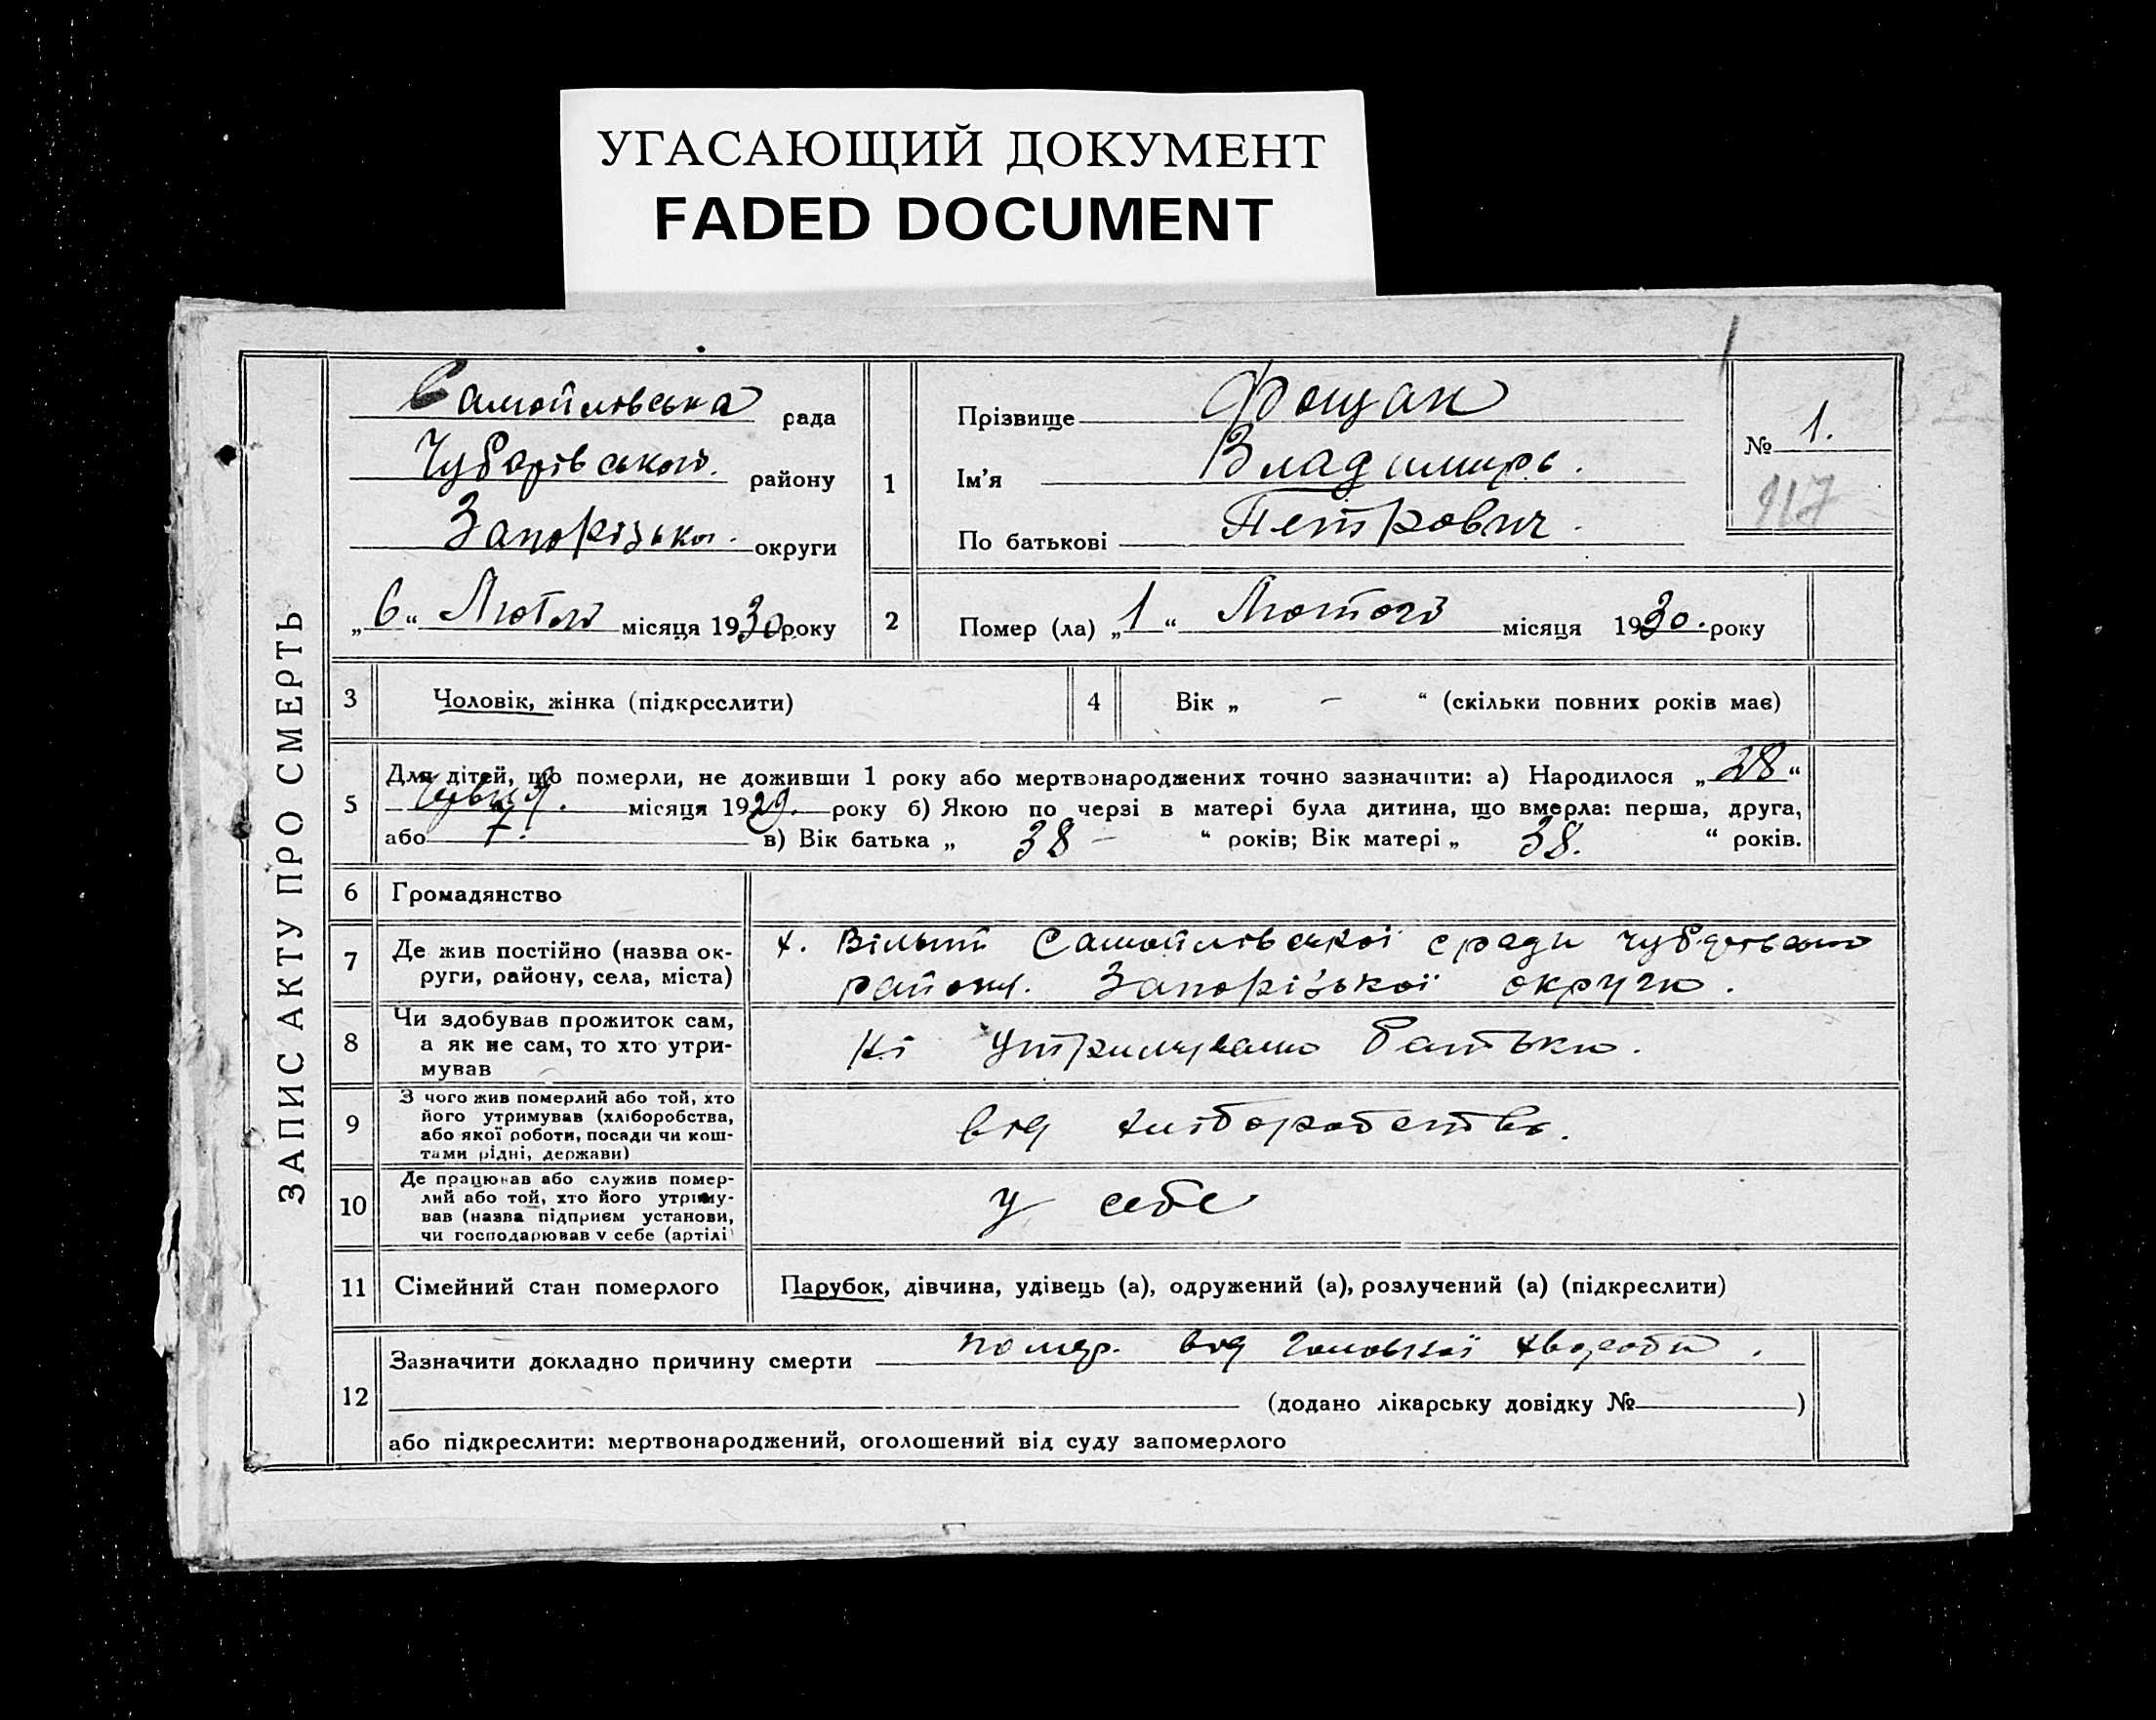 УГАСАЮЩИЙ ДОКУМЕНТ
FADED DOCUMENT
ЗАПИС АКТУ ПРО СМЕРТЬ
Самойлівська рада
Чубарівського. району
Запорізько. округи
„6“ Лютого місяця 1930 року
1
Прізвище Фощан
Ім'я Владимирь.
По батькові Петрович.
№ 1.
117
2
Помер (ла) „1“ Лютого місяця 1930. року
3
Чоловік, жінка (підкреслити)
4
Вік „ – “ (скільки повних років має)
5
Для дітей, що померли, не доживши 1 року або мертвонароджених точно зазначити: а) Народилося „28“
місяця 1929. року б) Якою по черзі в матері була дитина, що вмерла: перша, друга,
або 7. в) Вік батька „ 38 – “ років; Вік матері „ 38. “ років.
6
Громадянство
7
Де жив постійно (назва ок-
руги, району, села, міста)
х. Вільний Самойлівської сради Чубарівсько
району. Запорізької округи.
8
Чи здобував прожиток сам,
а як не сам, то хто утри-
мував
Ні утримували батьки.
9
З чого жив померлий або той, хто
його утримував (хліборобства,
або якої роботи, посади чи кош-
тами рідні, держави)
від хліборобства.
10
Де працював або служив помер-
лий або той, хто його утриму-
вав (назва підприєм установи,
чи господарював у себе (артілі)
у себе
11
Сімейний стан померлого
Парубок, дівчина, удівець (а), одружений (а), розлучений (а) (підкреслити)
12
Зазначити докладно причину смерти помер. від головної хвороби.
(додано лікарську довідку № )
або підкреслити: мертвонароджений, оголошений від суду запомерлого